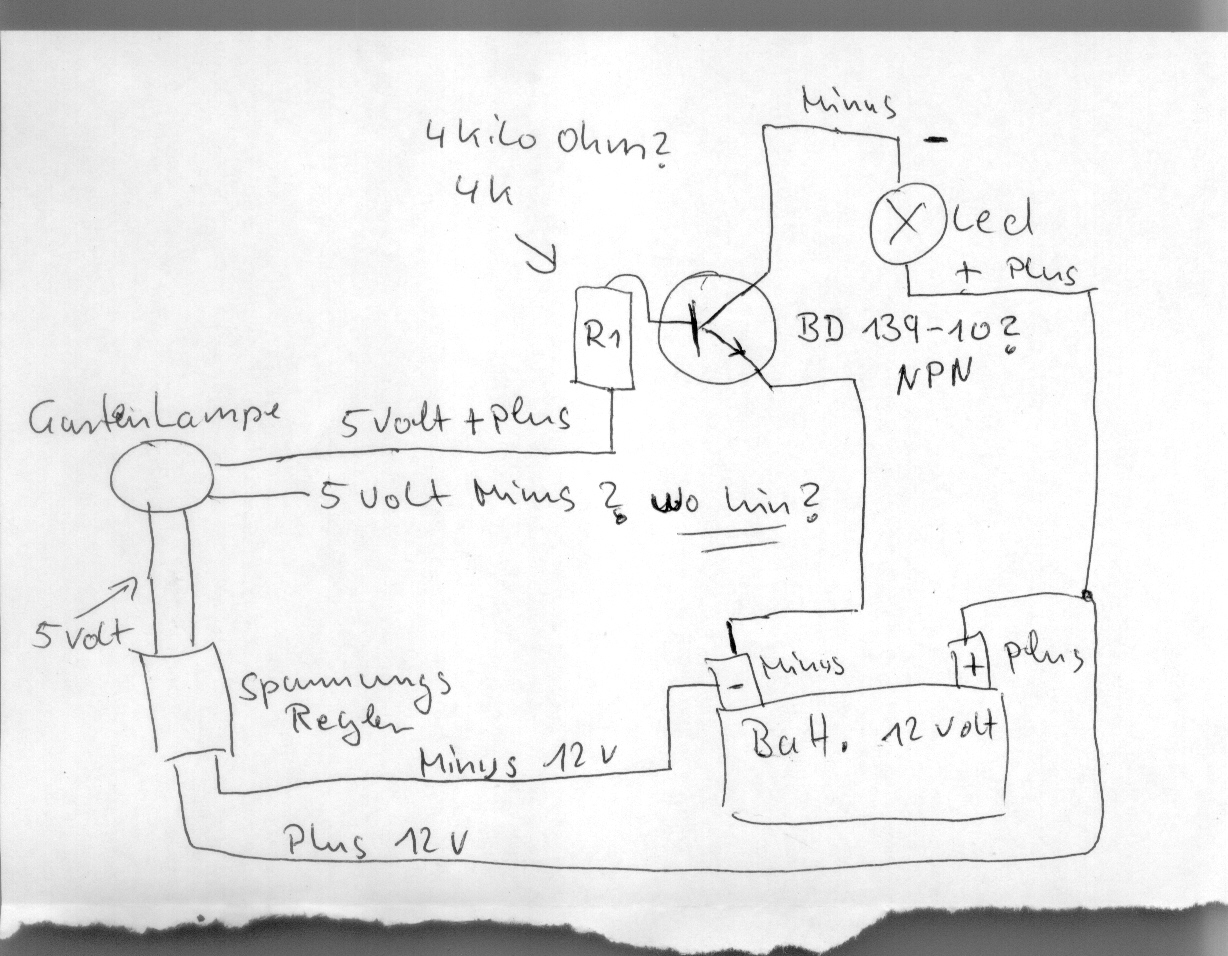 Minus
-
4 kilo Ohm?
4k
Led
+ Plus
R1
BD 139-10?
NPN
GartenLampe
5 Volt + Plus
5 Volt Minus? wo hin?
5 Volt
Spannungs
Regler
Minus
-
+
Plus
Batt. 12 Volt
Minus 12 V
Plus 12 V